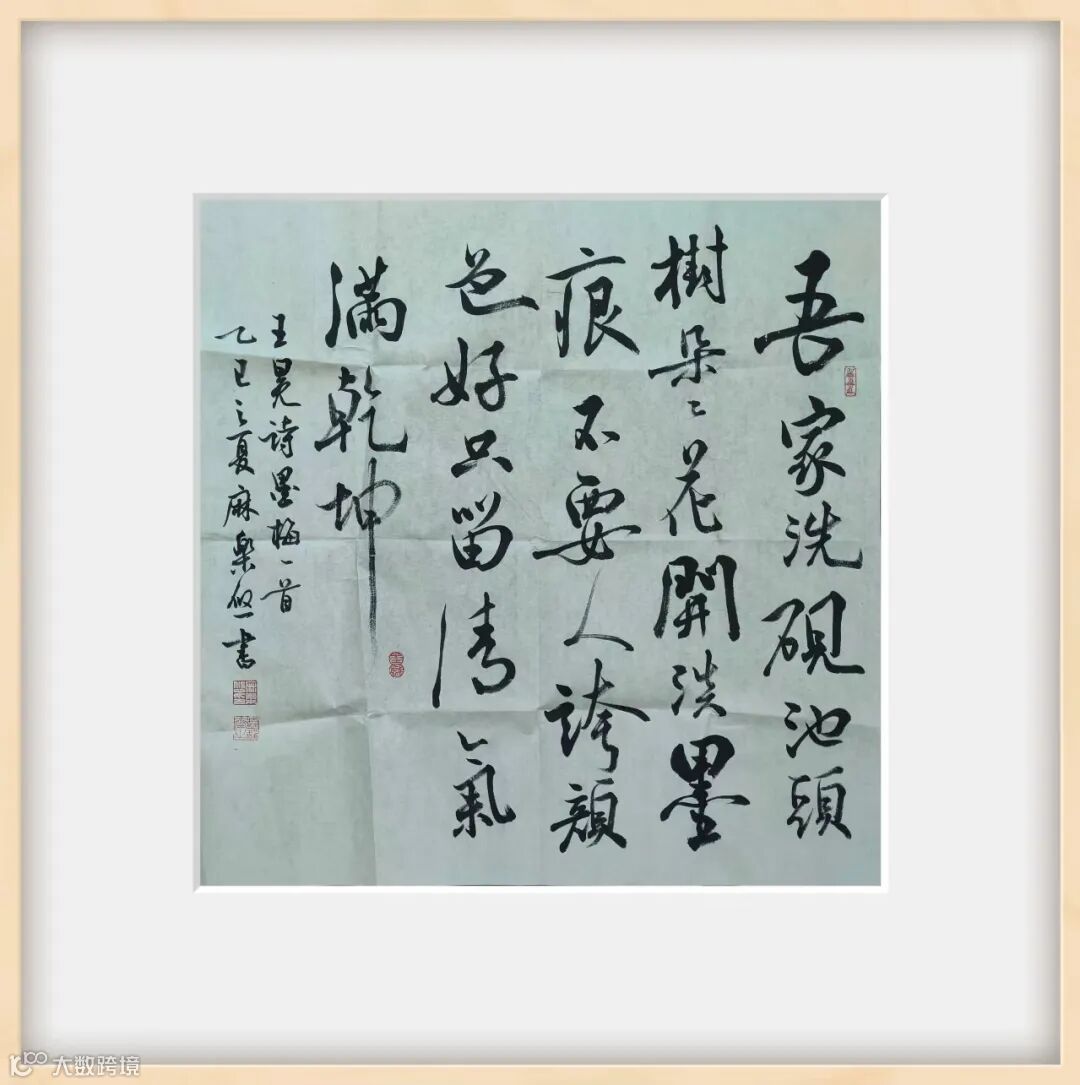 吾家洗硯池頭
樹朵々花開淡墨
痕不要人誇顏
色好只留清氣
滿乾坤
王冕詩墨梅一首
乙巳之夏麻樂悠一書
大数跨境